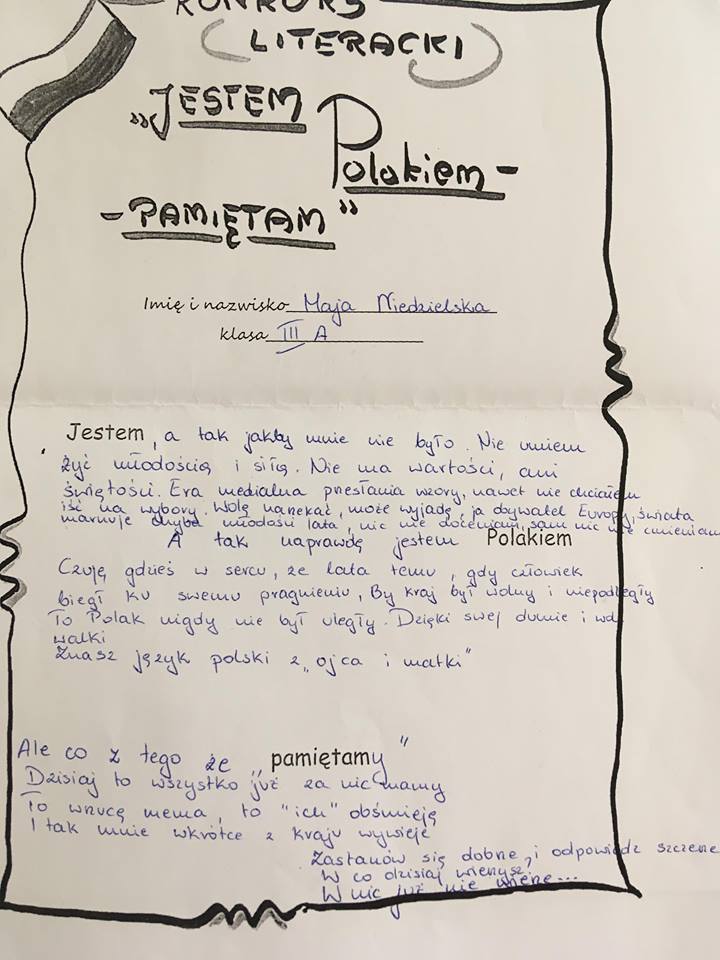 KONKURS
(LITERACKI)
„JESTEM
Polakiem -
- PAMIĘTAM”
Imię i nazwisko Maja Niedzielska
klasa III A
Jestem, a tak jakby mnie nie było. Nie umiem
żyć młodością i siłą. Nie ma wartości, ani
świętości. Era medialna przesłania wzory, nawet nie chciałem
iść na wybory. Wolę narzekać, może wyjadę, ja obywatel Europy, świata
marnuję chyba młodości lata, nic nie doceniam, sam nic nie zmieniam
A tak naprawdę jestem Polakiem
Czuję gdzieś w sercu, że lata temu, gdy człowiek
biegł ku swemu pragnieniu, By kraj był wolny i niepodległy
To Polak nigdy nie był uległy. Dzięki swej dumie i woli
walki
Znasz język polski z „ojca i matki”
Ale co z tego że „pamiętamy”
Dzisiaj to wszystko już za nic mamy
To wrzucę mema, to "ich" obśmieję
I tak mnie wkrótce z kraju wywieje
Zastanów się dobrze, i odpowiedz szczerze
W co dzisiaj wierzysz?
W nic już nie wierzę...